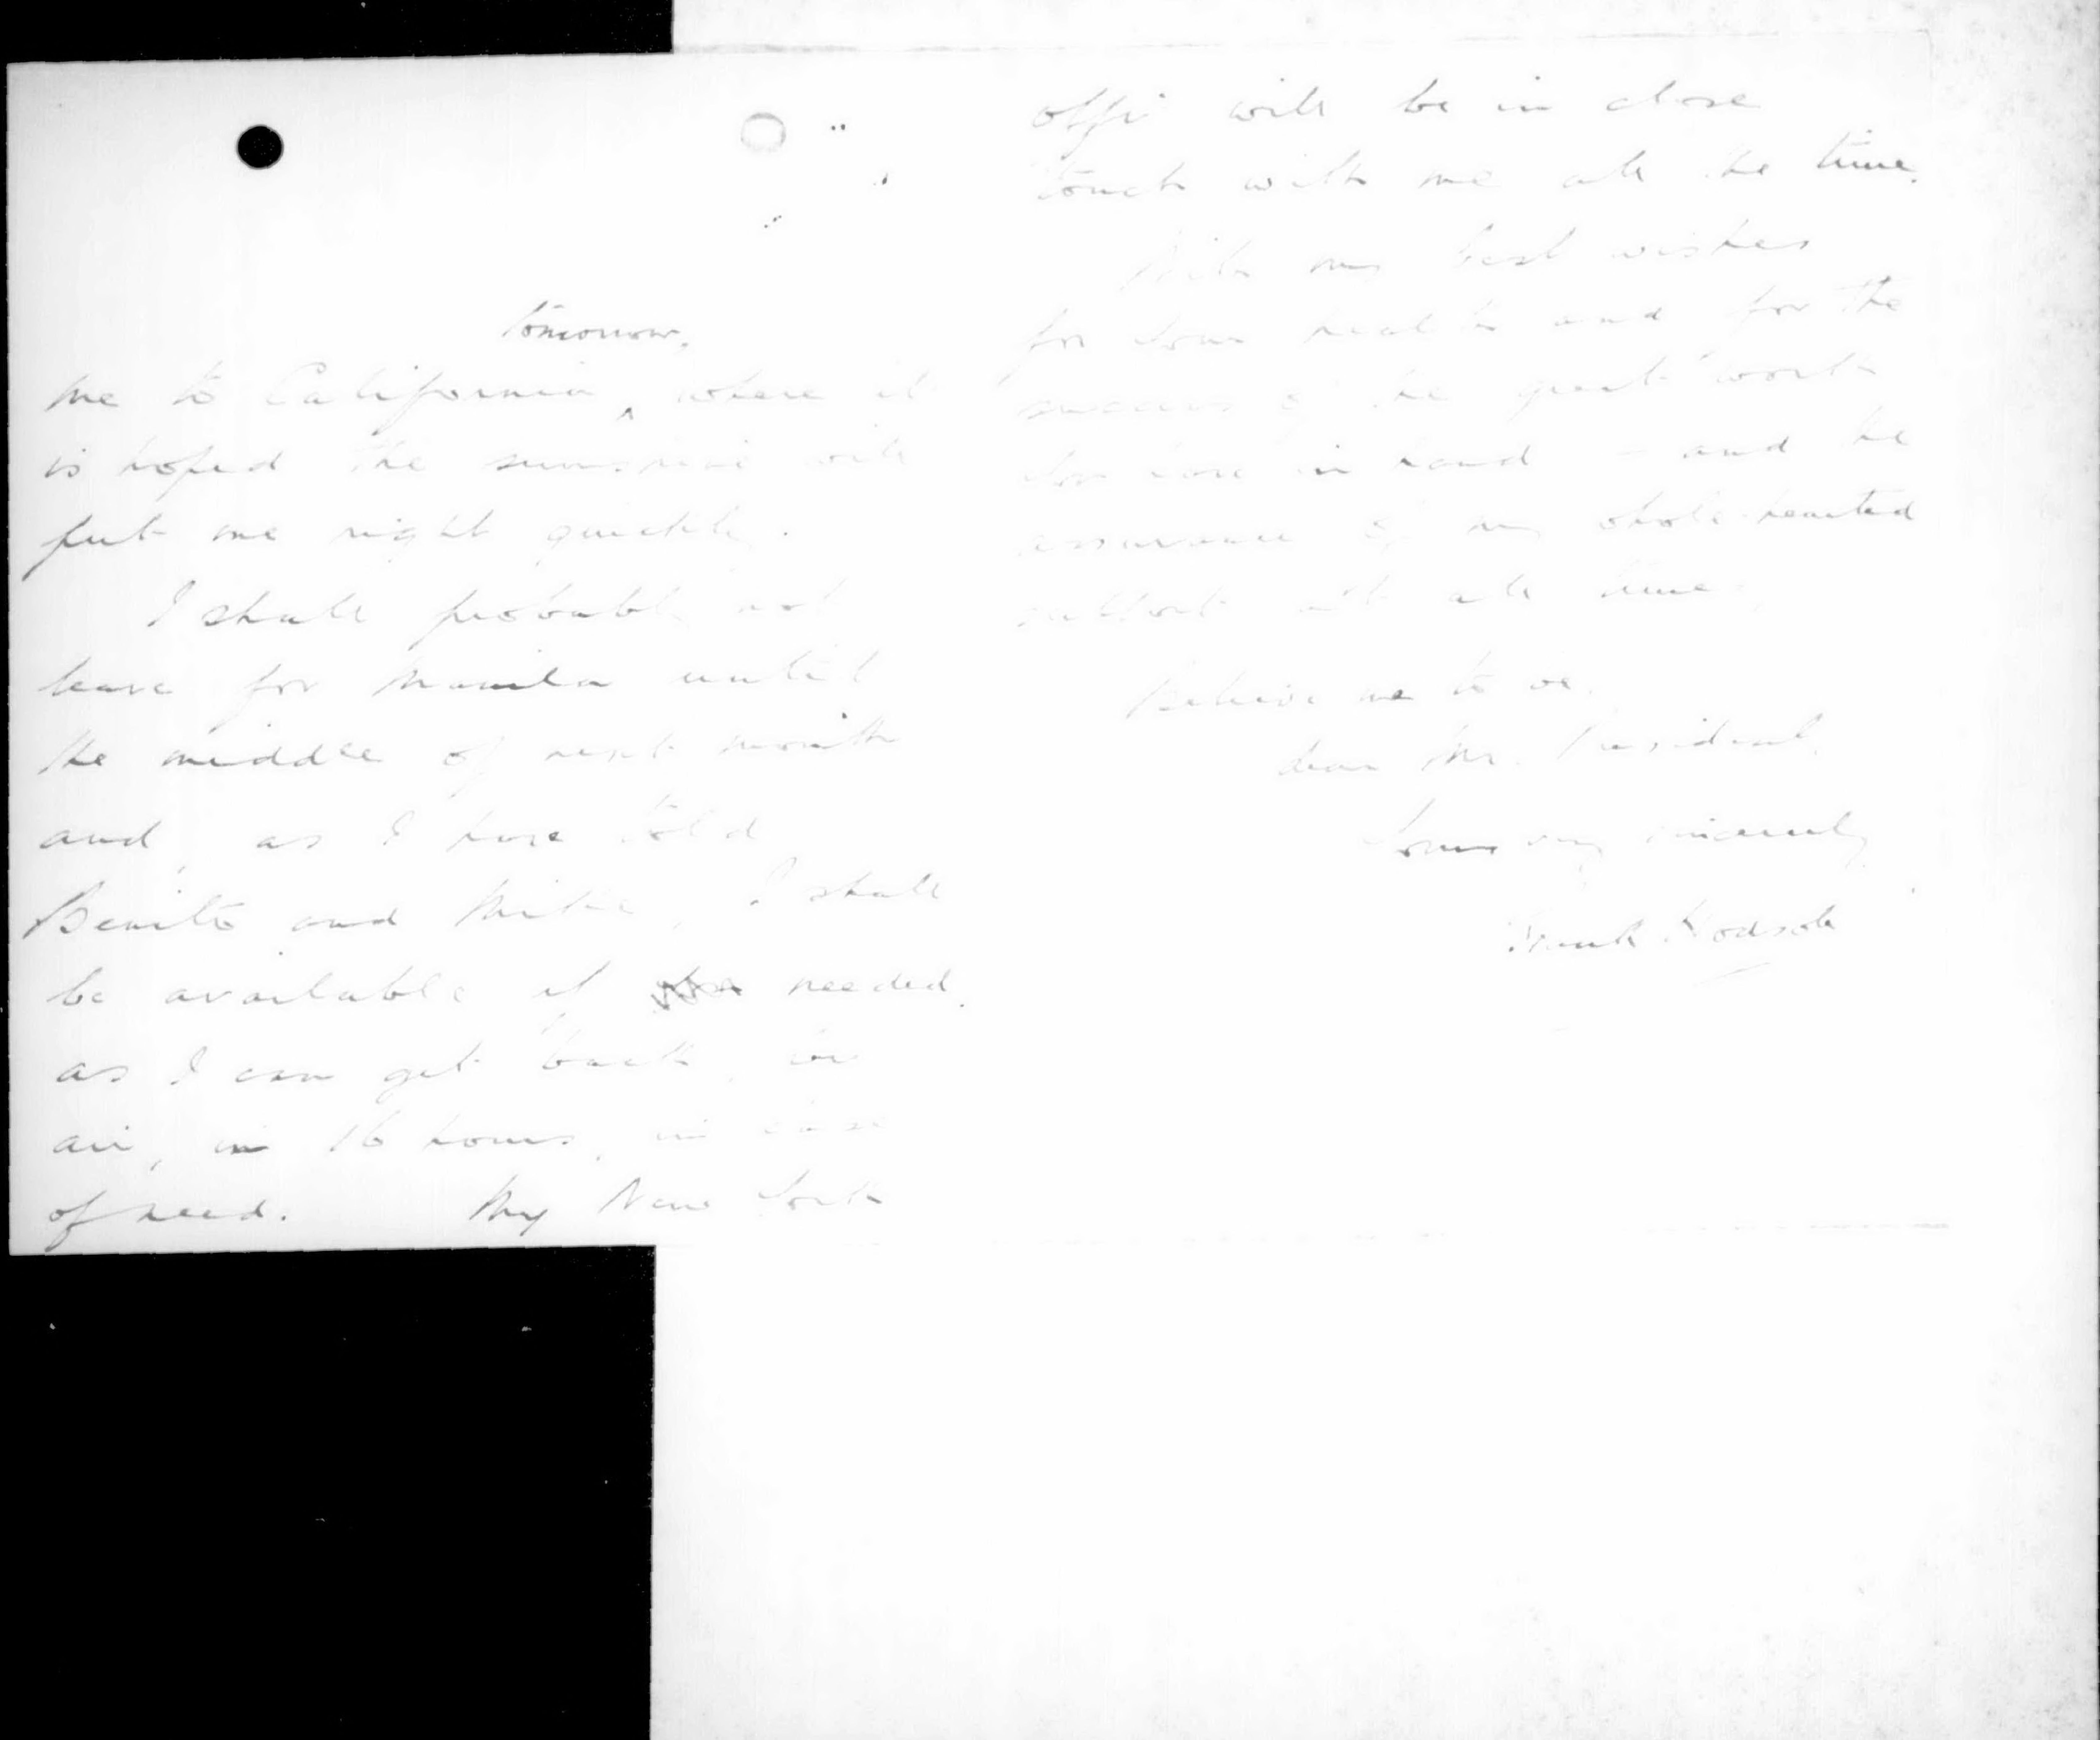 tomorrow.
me to California ‸ where it
is hoped the sunshine will
put me right quickly.
I shall probably not
leave for Manila until
the middle of next month
and, as I have told
Benito and Mike, I shall
be available if needed.
as I can get back, in
air, in 16 hours, in case
of need. My New York
office will be in close
touch with me all the time.
With my best wishes
for your health and for the
success of the great work
you have in hand - and the
assurance of my whole-hearted
support at all times.
Believe me to be,
dear Mr. President,
Yours very sincerely,
Frank Hodsoll